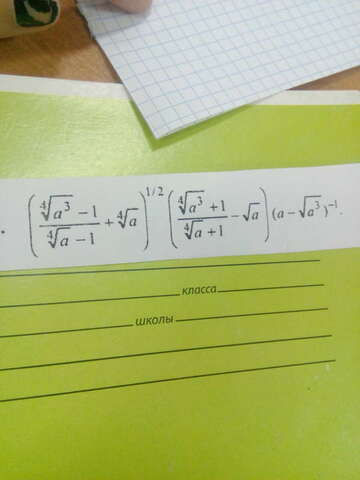 . \left( \frac{\sqrt[4]{a^3} - 1}{\sqrt[4]{a} - 1} + \sqrt[4]{a} \right)^{1/2} \left( \frac{\sqrt[4]{a^3} + 1}{\sqrt[4]{a} + 1} - \sqrt{a} \right) (a - \sqrt{a^3})^{-1}.
класса
школы